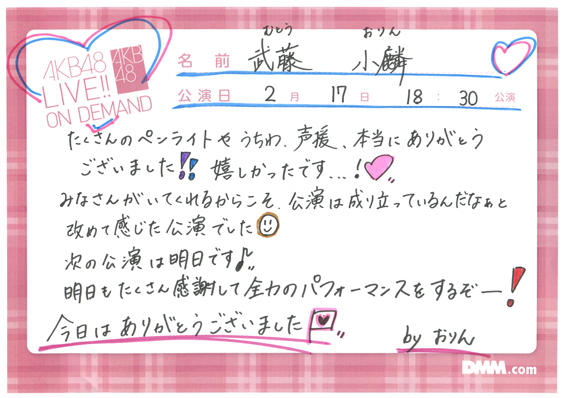 むとう おりん
名前 武藤 小麟
公演日 2月 17日 18:30 公演
AKB48
LIVE!!
ON DEMAND
AKB
48
たくさんのペンライトやうちわ、声援、本当にありがとう
ございました!! 嬉しかったです...!
みなさんがいてくれるからこそ、公演は成り立っているんだなぁと
改めて感じた公演でした
次の公演は明日です♪
明日もたくさん感謝して全力のパフォーマンスをするぞー!
今日はありがとうございました
by おりん
DMM.com